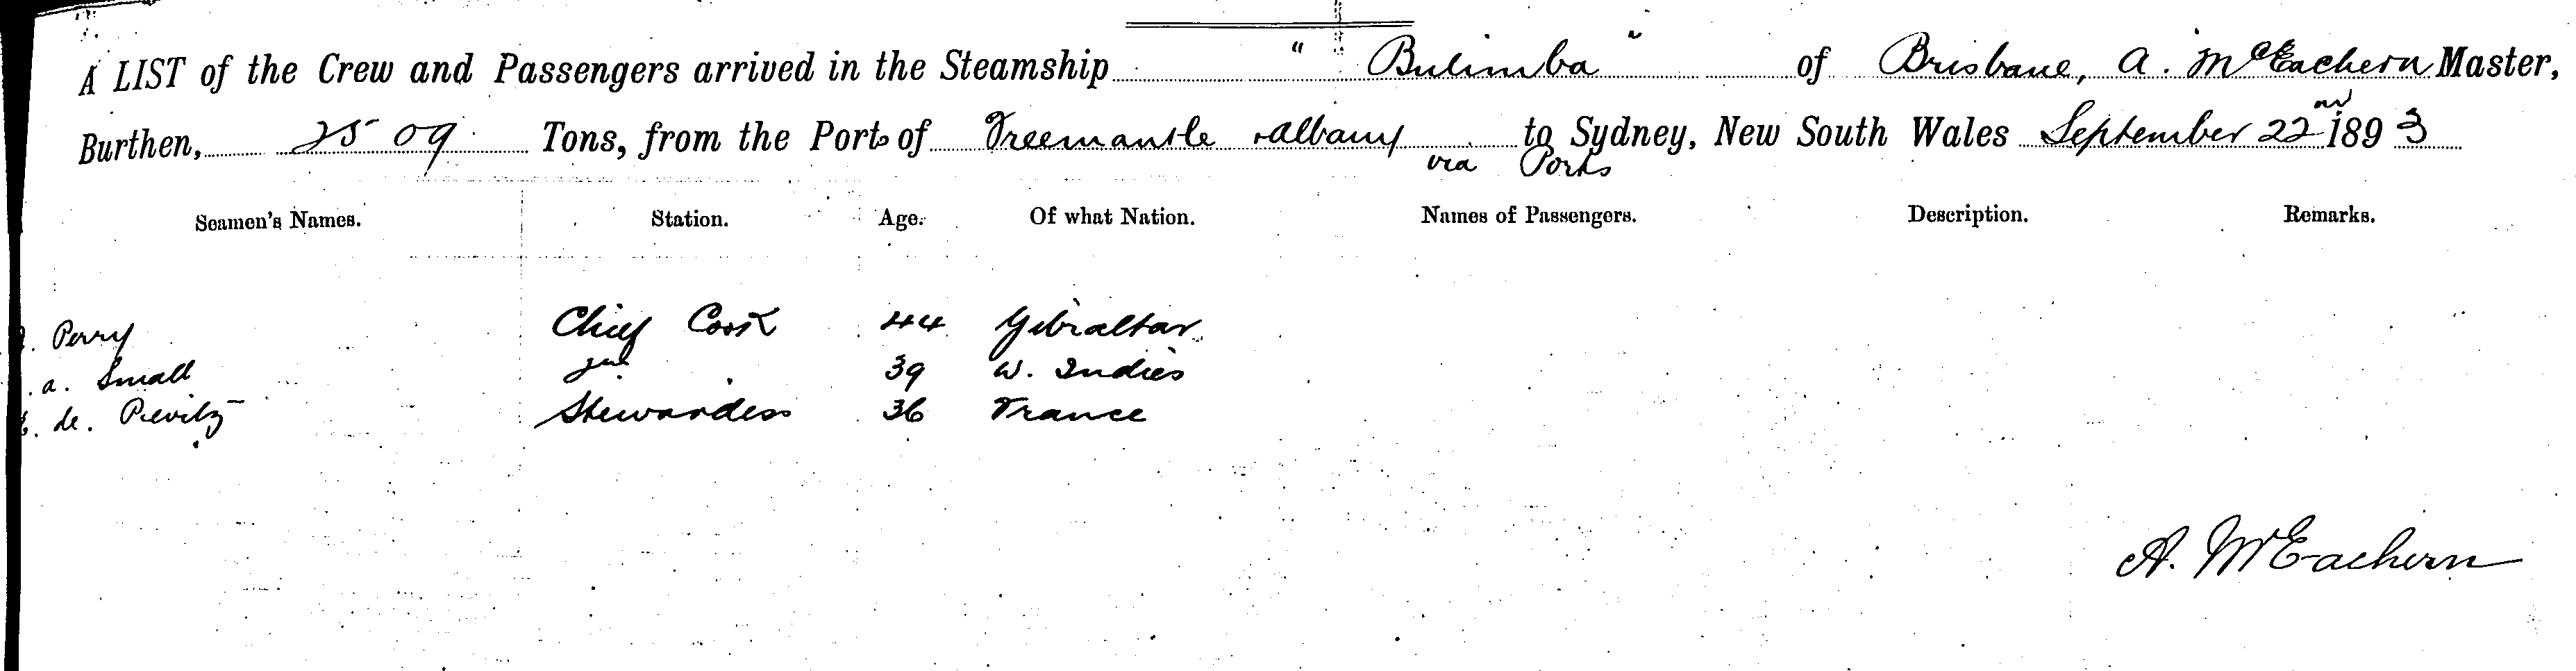 A LIST of the Crew and Passengers arrived in the Steamship " Bulimba " of Brisbane, A. McEachern Master,
Burthen, 2509 Tons, from the Ports of Freemantle & Albany to Sydney, New South Wales September 22nd 1893
via Ports
Seamen's Names. Station. Age. Of what Nation. Names of Passengers. Description. Remarks.
Perry Chief Cook 44 Gibraltar
a. Small 2nd 39 W. Indies
de. Pievitz Stewardess 36 France
A. McEachern